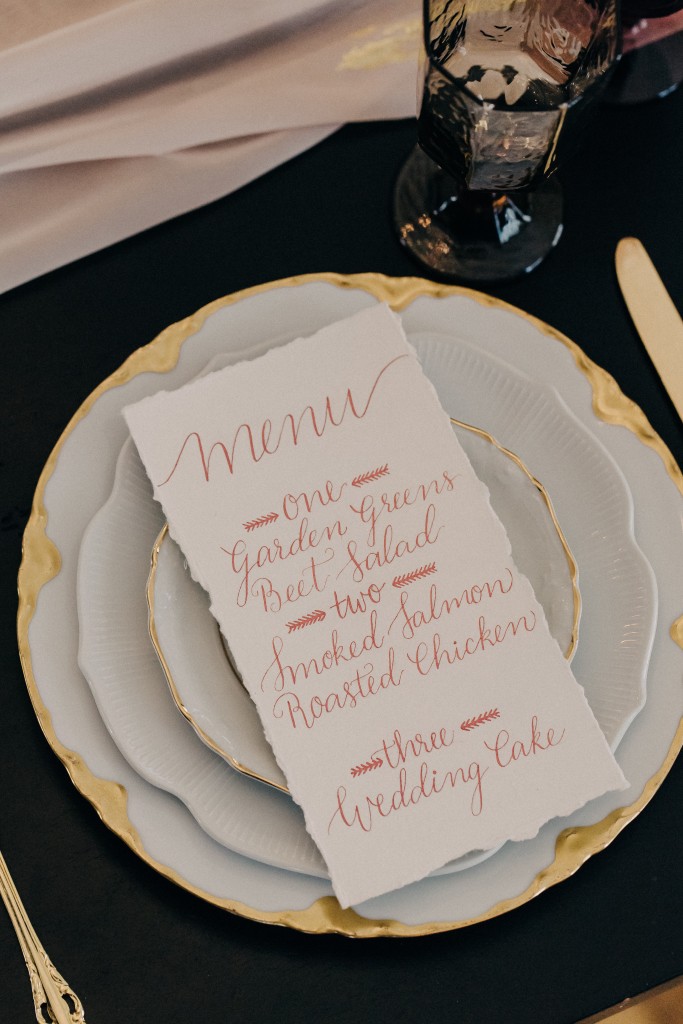 menu
one
Garden Greens
Beet Salad
two
Smoked Salmon
Roasted Chicken
three
Wedding Cake